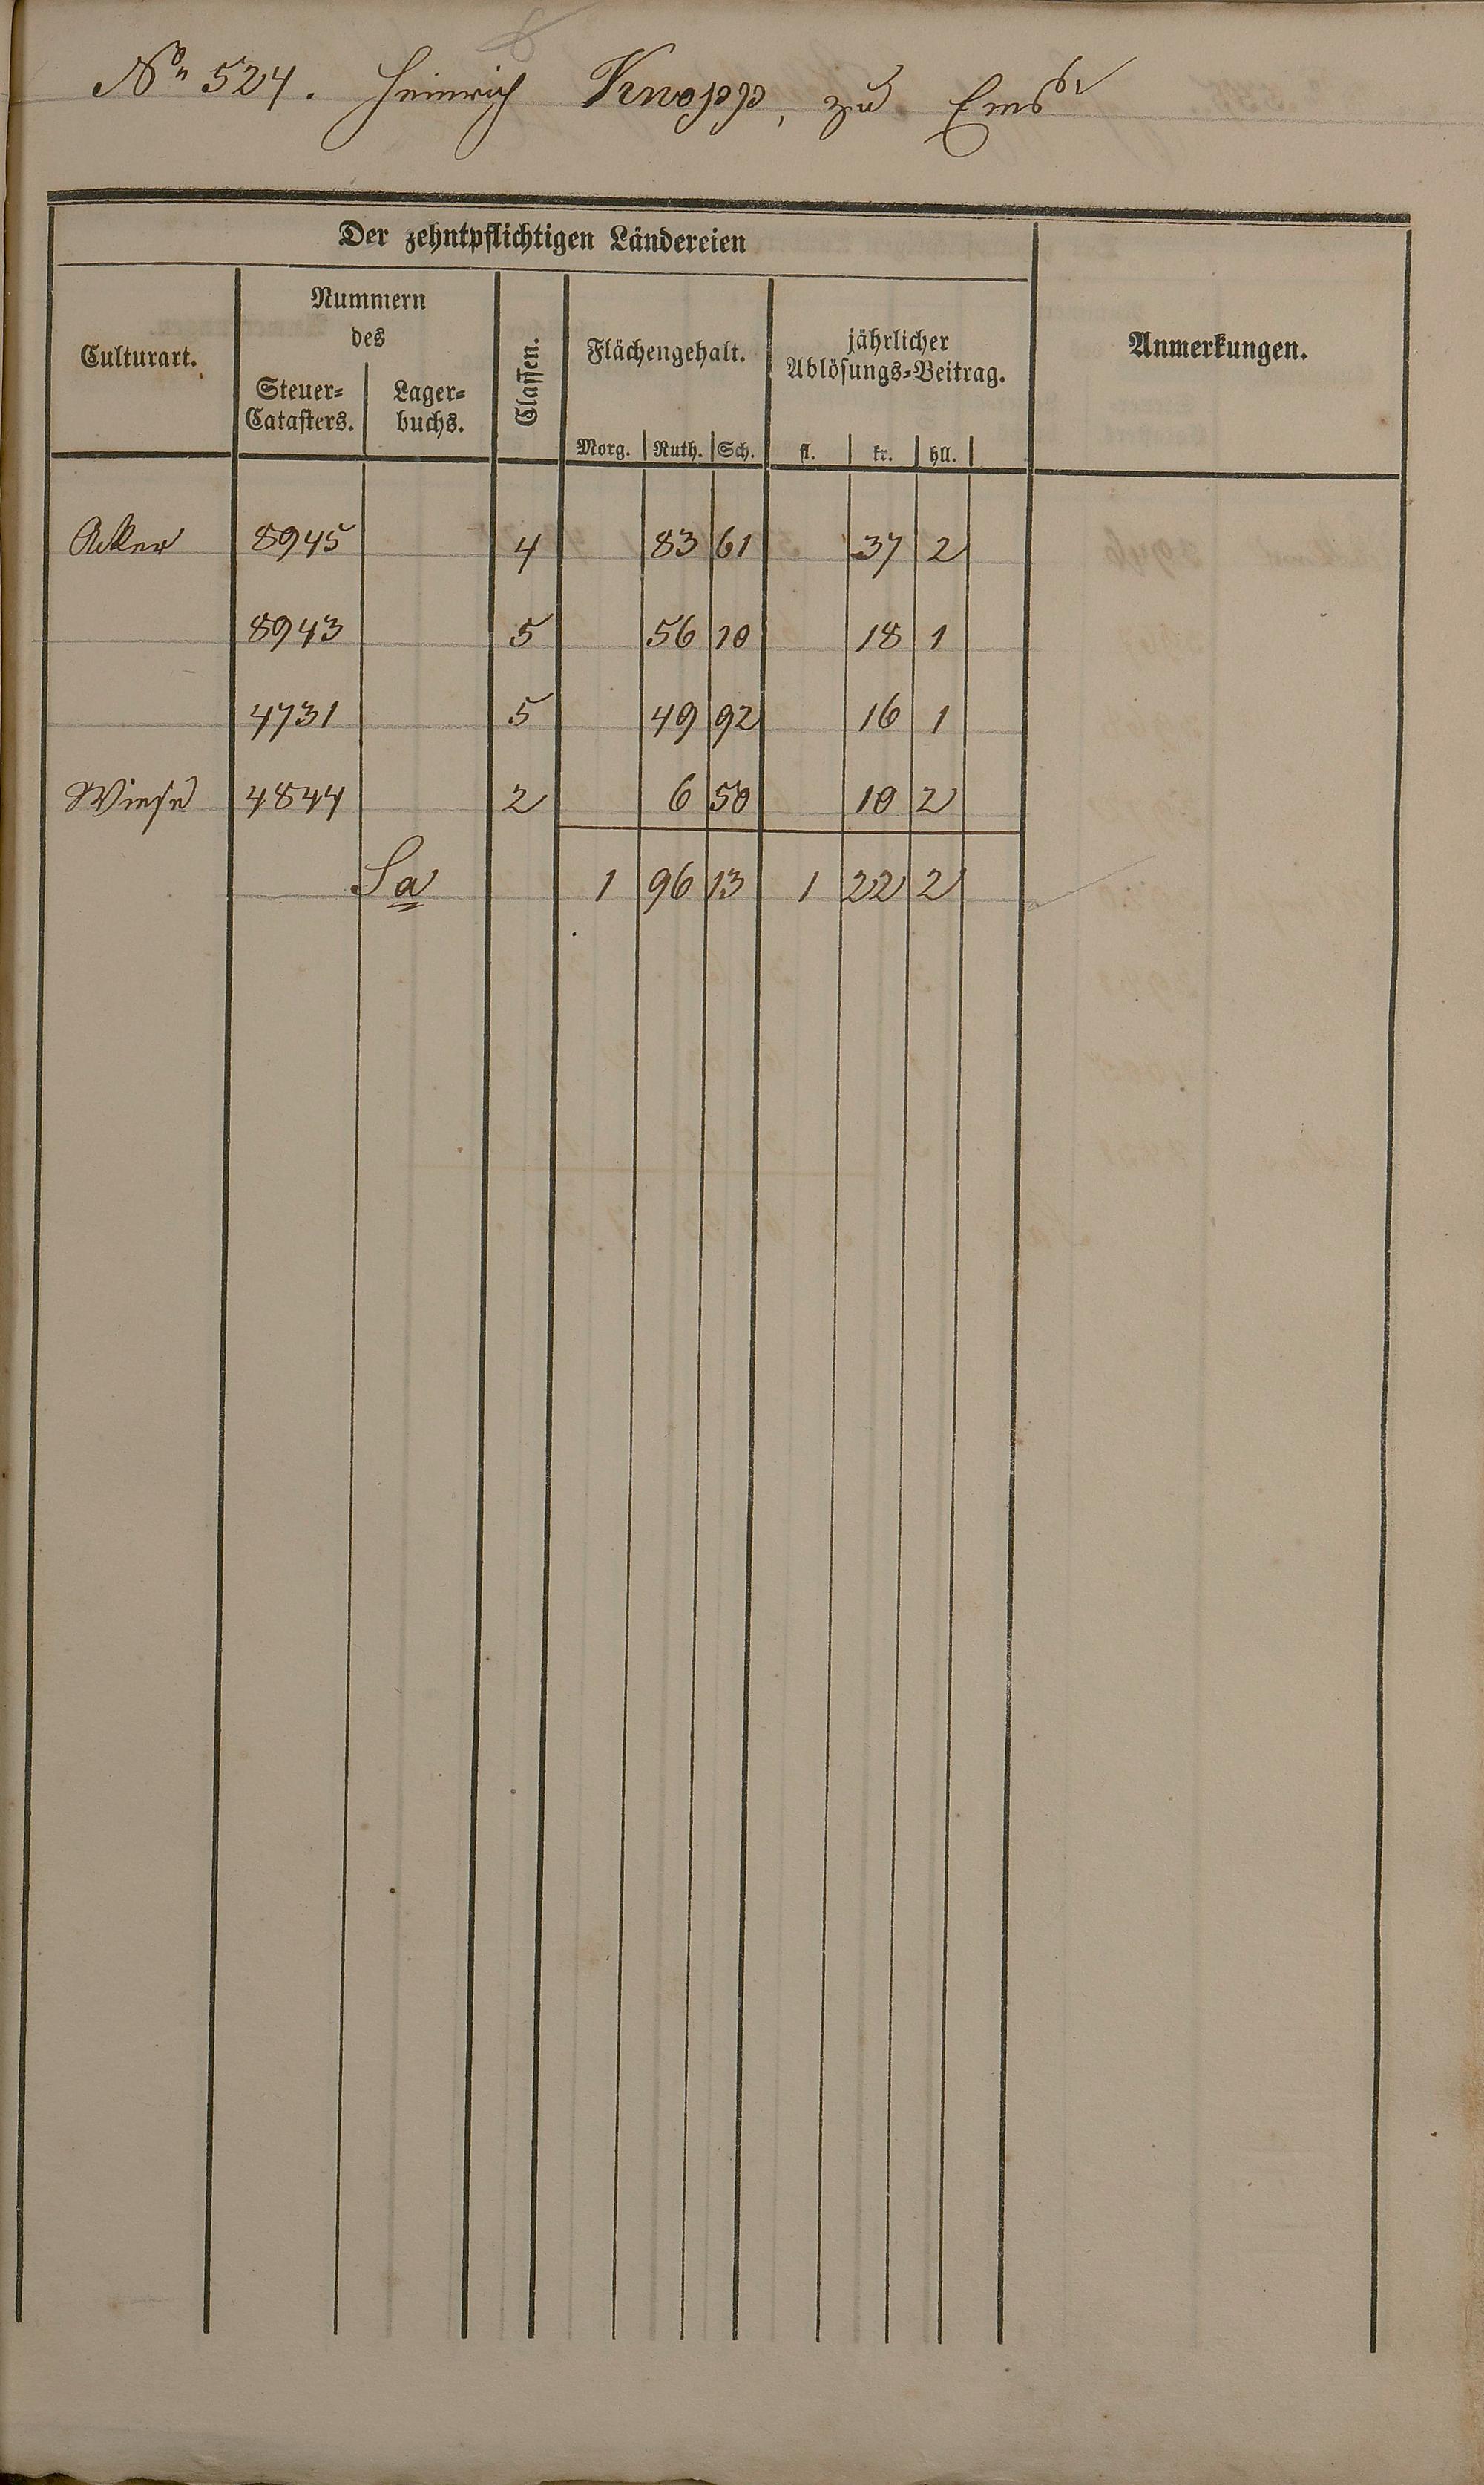 No 524. Heinrich Knopp, zu Ems
Der zehntpflichtigen Ländereien
Culturart.
Nummern
des
Steuer=
Catasters.
Lager=
buchs.
Classen.
Flächengehalt.
Morg. Ruth. Sch.
jährlicher
Ablösungs=Beitrag.
fl. kr. hll.
Anmerkungen.
Acker 8945 4 83 61 37 2
8943 5 56 10 18 1
4731 5 49 92 16 1
Wiese 4844 2 6 50 10 2
Sa 1 96 13 1 22 2